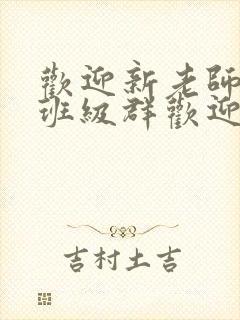 歡迎新老師
班級群歡迎
吉村土吉